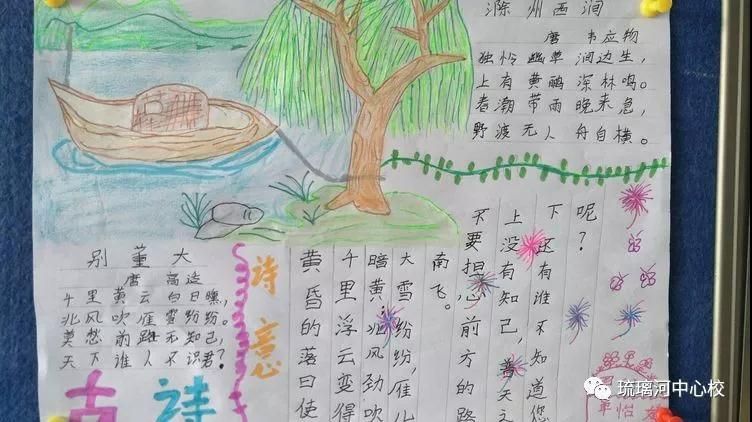 滁州西涧
唐 韦应物
独怜幽草涧边生，
上有黄鹂深林鸣。
春潮带雨晚来急，
野渡无人舟自横。
别董大
唐 高适
千里黄云白日曛，
北风吹雁雪纷纷。
莫愁前路无知己，
天下谁人不识君？
古诗
诗意
黄昏的落日使
千里浮云变得
暗黄；北风劲吹
大雪纷纷，雁儿
南飞。
不要担心前方的路
上没有知己，普天之
下还有谁不知道您
呢？
琉璃河中心校